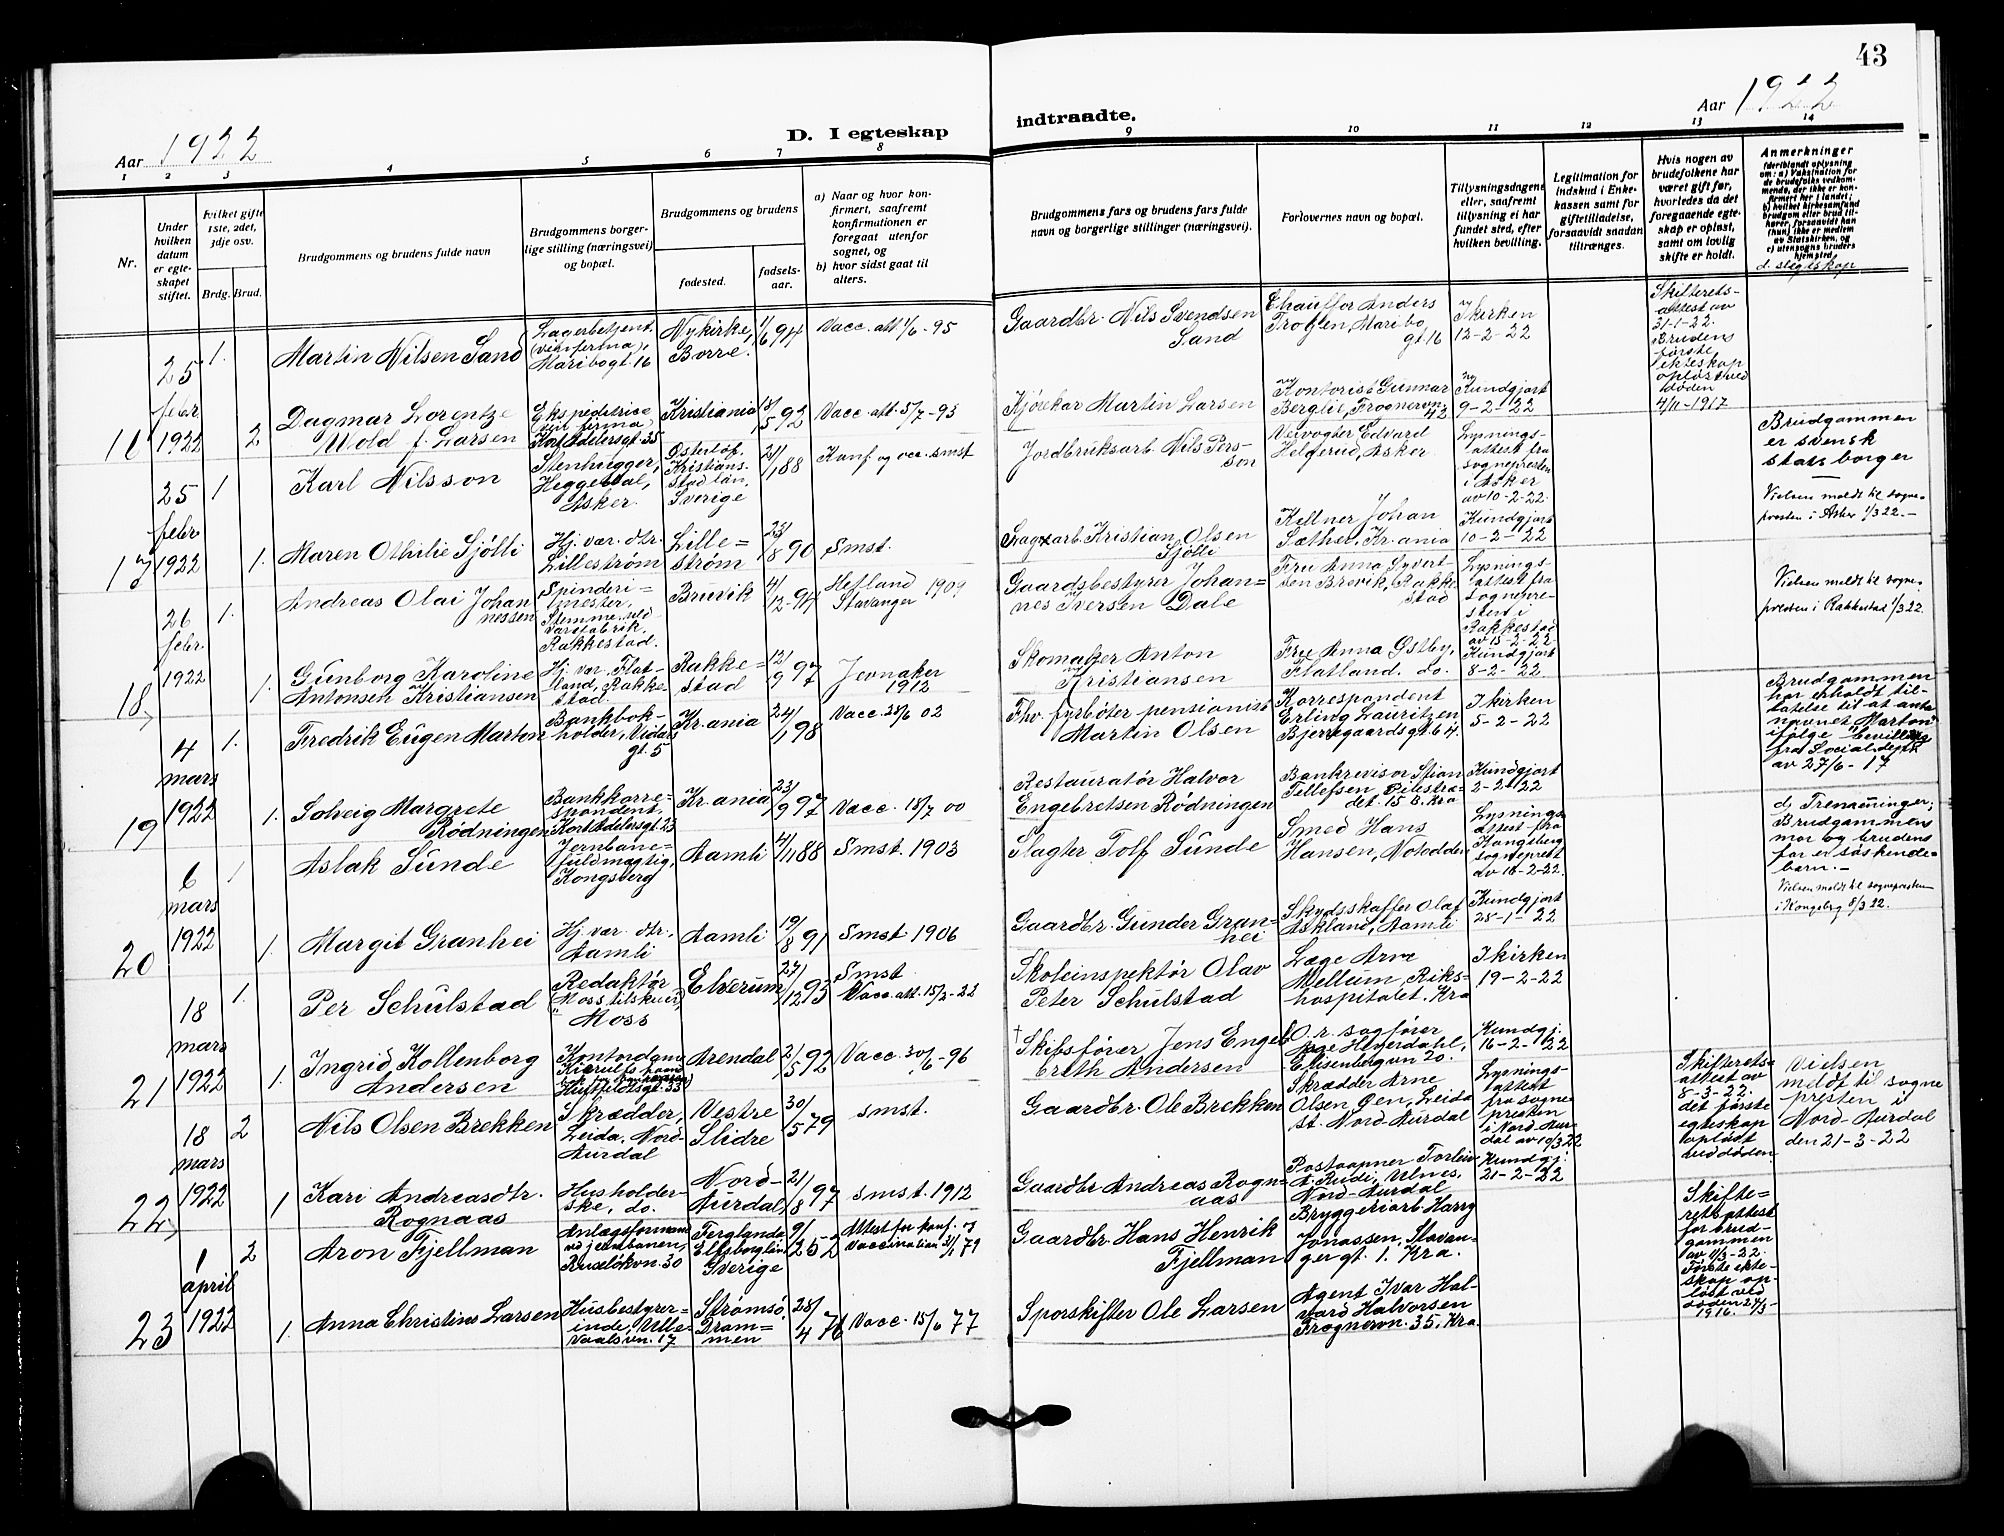 43
Aar 1922
D. I egteskap
indtraadte.
Aar 1922
1 2 3 4 5 6 7 8 9 10 11 12 13 14
Nr.
Under hvilken datum er egte-skapet stiftet.
Hvilket gifte 1ste, 2det, 3dje osv.
Brdg. Brud.
Brudgommens og brudens fulde navn
Brudgommens borger-lige stilling (næringsvei) og bopæl.
Brudgommens og brudens
fødested.
fødsels-aar.
a) Naar og hvor kon-firmert, saafremt konfirmationen er foregaat utenfor sognet, og
b) hvor sidst gaat til alters.
Brudgommens fars og brudens fars fulde navn og borgerlige stillinger (næringsvei).
Forlovernes navn og bopæl.
Tillysningsdagene eller, saafremt tillysning ei har fundet sted, efter hvilken bevilling.
Legitimation for indskud i Enke-kassen samt for giftetilladelse, forsaavidt saadan tiltrænges.
Hvis nogen av brudefolkene har været gift før, hvorledes da det foregaaende egte-skap er opløst, samt om lovlig skifte er holdt.
Anmerkninger
(deriblandt oplysning om: a) Vaksination for de brudefolks vedkom-mende, der ikke er kon-firmert her i landet; b) hvilket kirkesamfund brudgom eller brud til-hører, forsaavidt han (hun) ikke er medlem av Statskirken, og c) utensogns bruders hjemsted.
d. slegtskap
25 1. Martin Nilsen Sand
Lagerbetjent. (vinfirma), Maribogt. 16
Nykirke, Borre.
1/6 94
Vacc. att. 1/6 - 95
Gaardbr. Nils Svendsen Sand
Chauffør Anders Trogen, Maribogt. 16
I kirken 12-2-22
Skifterets-attest av 31-1-22. Brudens første ekteskap opløst ved døden 4/11-1917
febr 1922 2 Dagmar Lorentze Wold f. Larsen
Ekspeditrice (vin firma) Kort Adelersgt. 35
Kristiania
13/5 92
Vacc. att. 5/7 - 93
Kjørekar Martin Larsen
Kontorist Gunnar Berglie, Frognervn. 42
Kundgjort 9-2-22
25 1 Karl Nilsson
Stenhugger, Heggedal, Asker.
Østerlöf, Kristians-stad län, Sverige
21/1 88
Konf. og vcc. smst
Jordbruksarb. Nils Pers-son
Veivogter Edvard Helgerud, Asker
Lysnings-attest fra sognepresten i Asker av 10-2-22.
Brudgammen er svensk statsborger
Vielsen meldt til sogne-presten i Asker 1/3 22. -
17 febr 1922 1. Maren Othilie Sjølli
Hj. vær. dtr. Lillestrøm
Lille=strøm
23/8 90
Smst.
Kristian Olsen Sjølli
Kellner Johan Sæther, Kr.ania
Kundgjort 10-2-22
26 1. Andreas Olai Johannessen
Spinderi=mester, Rakkestad.
Bruvik
4/12-94
Hetland Stavanger 1909
Gaardsbestyrer Johan=nes Iversen Dale
Fru Anna Syvert-sen Brevik, Rakke-stad
Lysnings-attest fra sognepre-sten i Rakkestad av 15-2-22
Vielsen meldt til sogne-presten i Rakkestad 1/3 22.
18, febr. 1922 1. Gunborg Karoline Antonsen Kristiansen
Hj. vær. Flat-land, Rakke-stad
Rakke=stad
12/9 97
Jevnaker 1912
Skomaker Anton Kristiansen
Fru Anna Østby, Flatland. do.
Kundgjort 8-2-22
4 1. Fredrik Eugen Marton
Bankbok-holder, Vidargt. 5
Kr.ania
24/1 98
Vacc. 28/6 02
Fhv. fyrbøter pensionist Martin Olsen
Korrespondent Erling Lauritzen, Bjerregaardsgt. 64.
I kirken 5-2-22
Brudgammen har erholdt til-latelse til at anta navnet "Marton" ifølge bevilling fra Socialdept. av 27/6-17
19 mars 1922 1. Solveig Margrete Rødningen
Bankkorre-spondent, Kort Adelersgt. 23
Kr.ania
23/9 97
Vacc. 18/7 00
Restauratør Halvor Engebretsen Rødningen
Bankrevisor Stian Tellefsen, Pilestræ-det 15 B. Kra
Kundgjort 2-2-22
6 1 Aslak Sunde
Jernbane=fuldmægtig, Kongsberg
Aamli
4/11 88
Smst. 1903
Slagter Tolf Sunde
Smed Hans Hansen, Notodden
Lysnings-attest fra Kongsberg sogneprest av 18-2-22.
d) Tremenninger; Brudgammens mor og brudens far er søskende=barn. -
Vielsen meldt til sognepresten i Kongsberg 8/3 22.
20 mars 1922 1. Margit Granhei
Hj. vær. dtr, Aamli
Aamli
19/8 91
Smst 1906
Gaardbr. Gunder Gran=hei
Skydsskaffer Olaf Askland, Aamli
Kundgjort 25-1-22
18 1. Per Schulstad
Redaktør "Moss tilskuer" Moss
Elverum
27/12 93
Smst Vacc. att. 15/2-22
Skoleinspektør Olav Peter Schulstad
Læge Arne Mellum, Riks-hospitalet. Kra
I kirken 19-2-22
21 mars 1922 1. Ingrid Kollenborg Andersen
Kontordame Huitfeldtsgt. 33
Arendal
2/5 92
Vacc. 30/6-96
† Skibsfører Jens Engel-breth Andersen
O.r. sagfører Aage Heyerdahl, Elisenbergvn 20.
Kundgj. 16-2-22
18 2 Nils Olsen Brekken
Skrædder, Leida, Nord-Aurdal
Vestre Slidre
30/5 79
smst.
Gaardbr. Ole Brekken
Skrædder Arne Olsen Øen, Leida st. Nord-Aurdal
Lysnings-attest fra sogne-presten i Nord-Aur-dal av 10/3 22
Skifterets-attest av 8-3-22. det første egteskap opløst ved døden.
Vielsen meldt til sogne presten i Nord-Aurdal den 21-3-22
22, mars 1922 1 Kari Andreasdtr. Rognaas
Husholder-ske, do.
Nord-Aurdal
21/8 97
smst. 1912
Gaardbr Andreas Rogn=aas
Postaapner Torleiv A. Rudi, Ulnes, Nord-Aurdal
Kundgj. 21-2-22
1 2 Aron Fjellman
Anlægsformann ved jernbanen, Ruseløkvn. 30
Ferglanda Elfsborg län Sverige
9/2 52
Attest for konf. og vaccination 21/1 79
Gaardbr. Hans Henrik Fjellman
Bryggeriarb. Harry Jonassen, Stavan-gergt. 1. Kra.
Skifte=rettsattest for brud-gammen av 1/3-22. Første ekte-skap op-løst ved døden 24/3-1916.
23 april 1922 1. Anna Christine Larsen
Husbestyrer-inde, Ulle-vaalsvn. 17
Strømsø, Dram=men
28/4 76
Vacc. 15/6 77
Sporskifter Ole Larsen
Agent Ivar Hal-vard Halvorsen Frognervn. 35, Kra.